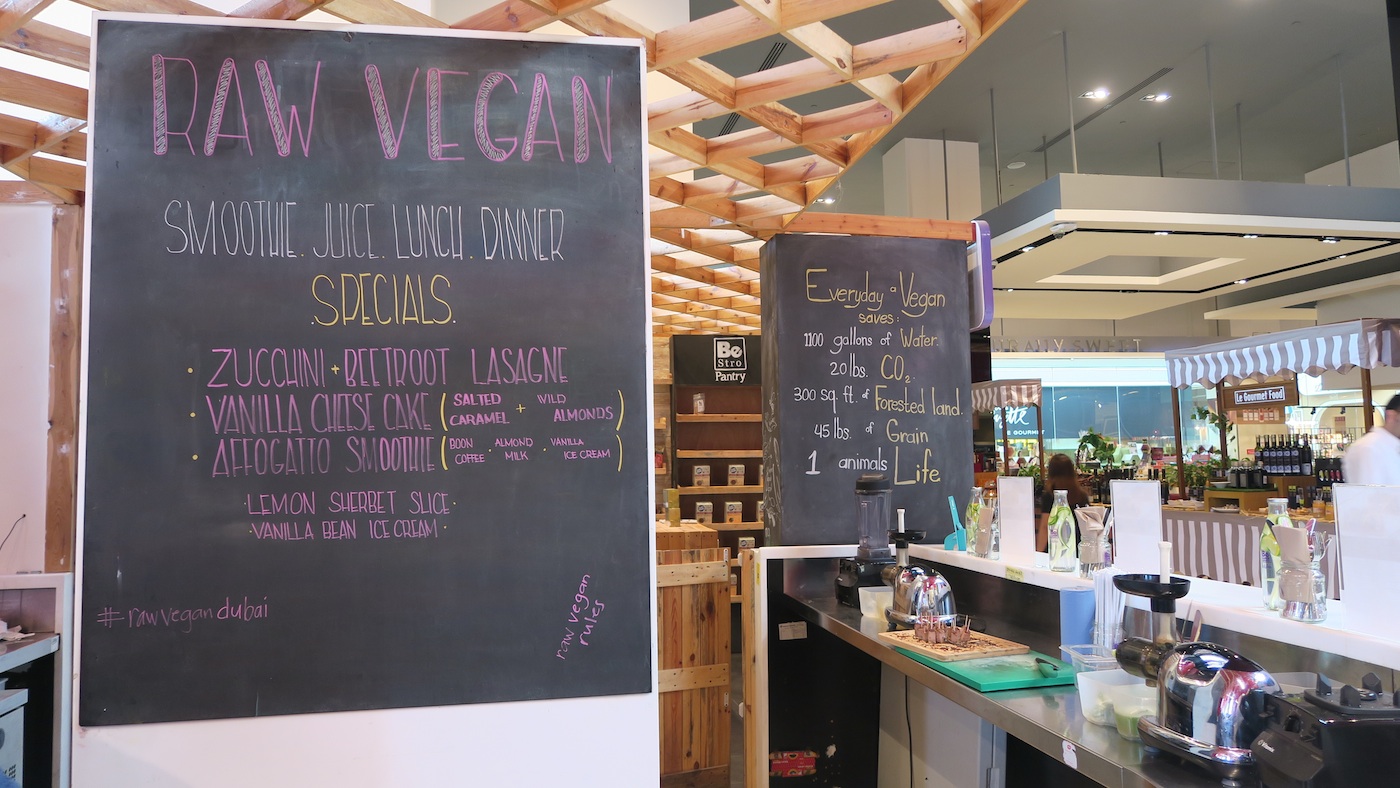 RAW VEGAN
SMOOTHIE. JUICE. LUNCH. DINNER
.SPECIALS.
• ZUCCHINI + BEETROOT LASAGNE
• VANILLA CHEESE CAKE (SALTED CARAMEL + WILD ALMONDS)
• AFFOGATTO SMOOTHIE (BOON COFFEE • ALMOND MILK • VANILLA ICE CREAM)
•LEMON SHERBET SLICE•
•VANILLA BEAN ICE CREAM•
#rawvegandubai
raw vegan
rules
Be
Stro
Pantry
Everyday a Vegan
saves:
1100 gallons of Water.
20 lbs. CO2.
300 sq. ft. of Forested land.
45 lbs. of Grain
1 animals Life
Le Gourmet Food